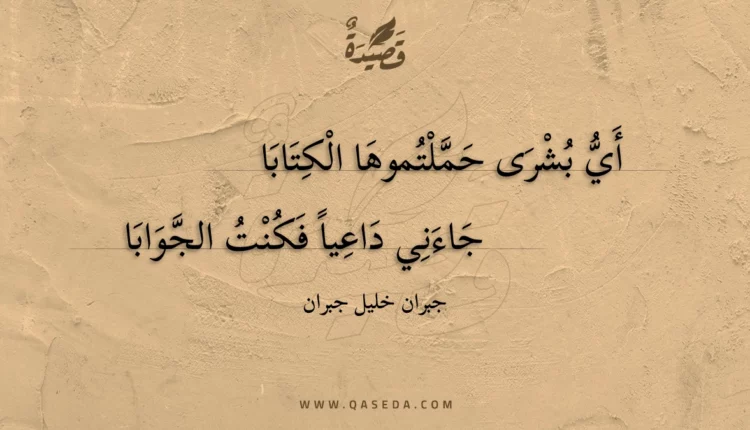 قَصِيدَةٌ
أَيُّ بُشْرَى حَمَّلْتُموهَا الْكِتَابَا
جَاءَنِي دَاعِياً فَكُنْتُ الجَّوَابَا
جبران خليل جبران
WWW.QASEDA.COM